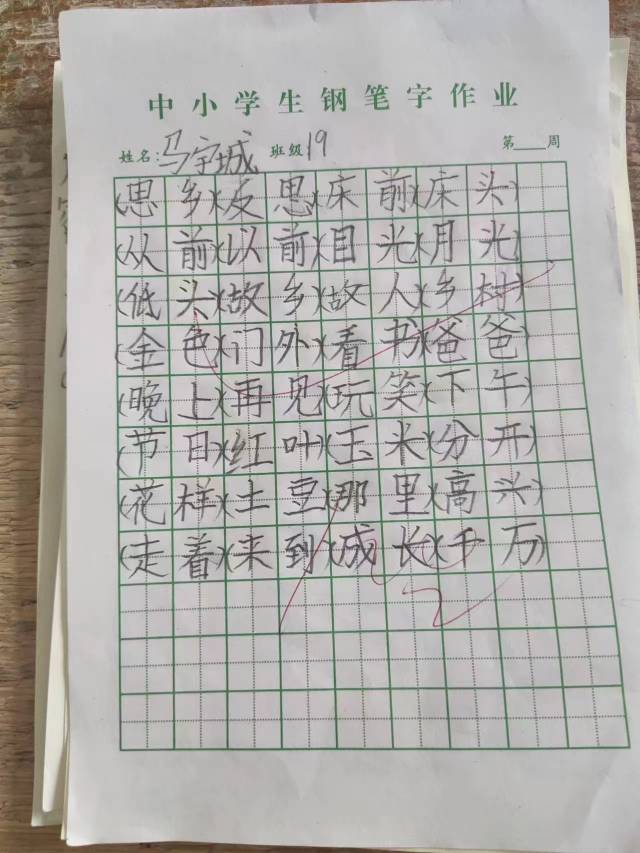 中小学生钢笔字作业
姓名:马宇城 班级19 第____周
(思乡)(反思)(床前)(床头)
(从前)(以前)(目光)(月光)
(低头)(故乡)(故人)(乡村)
(金色)(门外)(看书)(爸爸)
(晚上)(再见)(玩笑)(下午)
(节日)(红叶)(玉米)(分开)
(花样)(土豆)(那里)(高兴)
(走着)(来到)(成长)(千万)